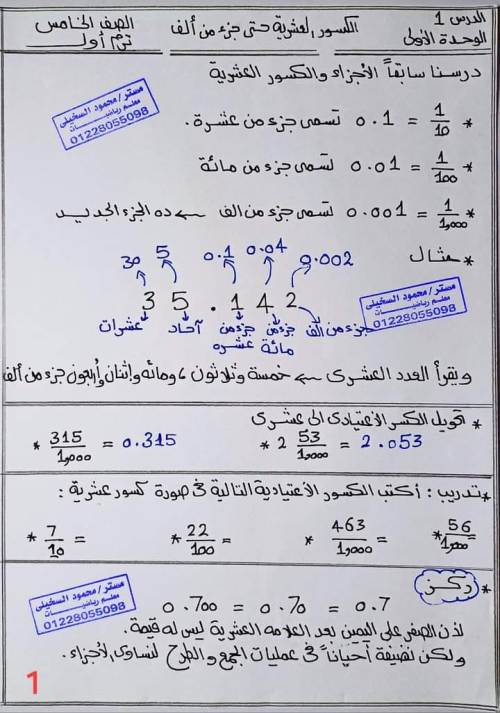 الدرس 1
الوحدة الأولى
الكسور العشرية حتى جزء من ألف
الصف الخامس
ترم أول
درسنا سابقاً الأجزاء والكسور العشرية
مستر / محمود السخيلى
معلم رياضيات
01228055098
* 1/10 = 0.1 تسمى جزء من عشرة.
* 1/100 = 0.01 تسمى جزء من مائة
* 1/1,000 = 0.001 تسمى جزء من الف ← ده الجزء الجديد
* مثال
30 5 0.1 0.04 0.002
3 5 . 1 4 2
عشرات آحاد جزء من عشره جزء من مائة جزء من الف
مستر / محمود السخيلى
معلم رياضيات
01228055098
ويقرأ العدد العشرى ← خمسة وثلاثون، ومائه وإثنان وأربعون جزء من ألف
* تحويل الكسر الأعتيادى الى عشرى
* 2 53/1,000 = 2.053
* 315/1,000 = 0.315
* تدريب : أكتب الكسور الأعتيادية التالية فى صورة كسور عشرية :
* 56/1,000 =
* 463/1,000 =
* 22/100 =
* 7/10 =
* ركز
0.700 = 0.70 = 0.7
لأن الصفر على اليمين بعد العلامه العشرية ليس له قيمة.
ولكن نضيفة أحياناً فى عمليات الجمع والطرح لتساوى الأجزاء.
مستر / محمود السخيلى
معلم رياضيات
01228055098
1